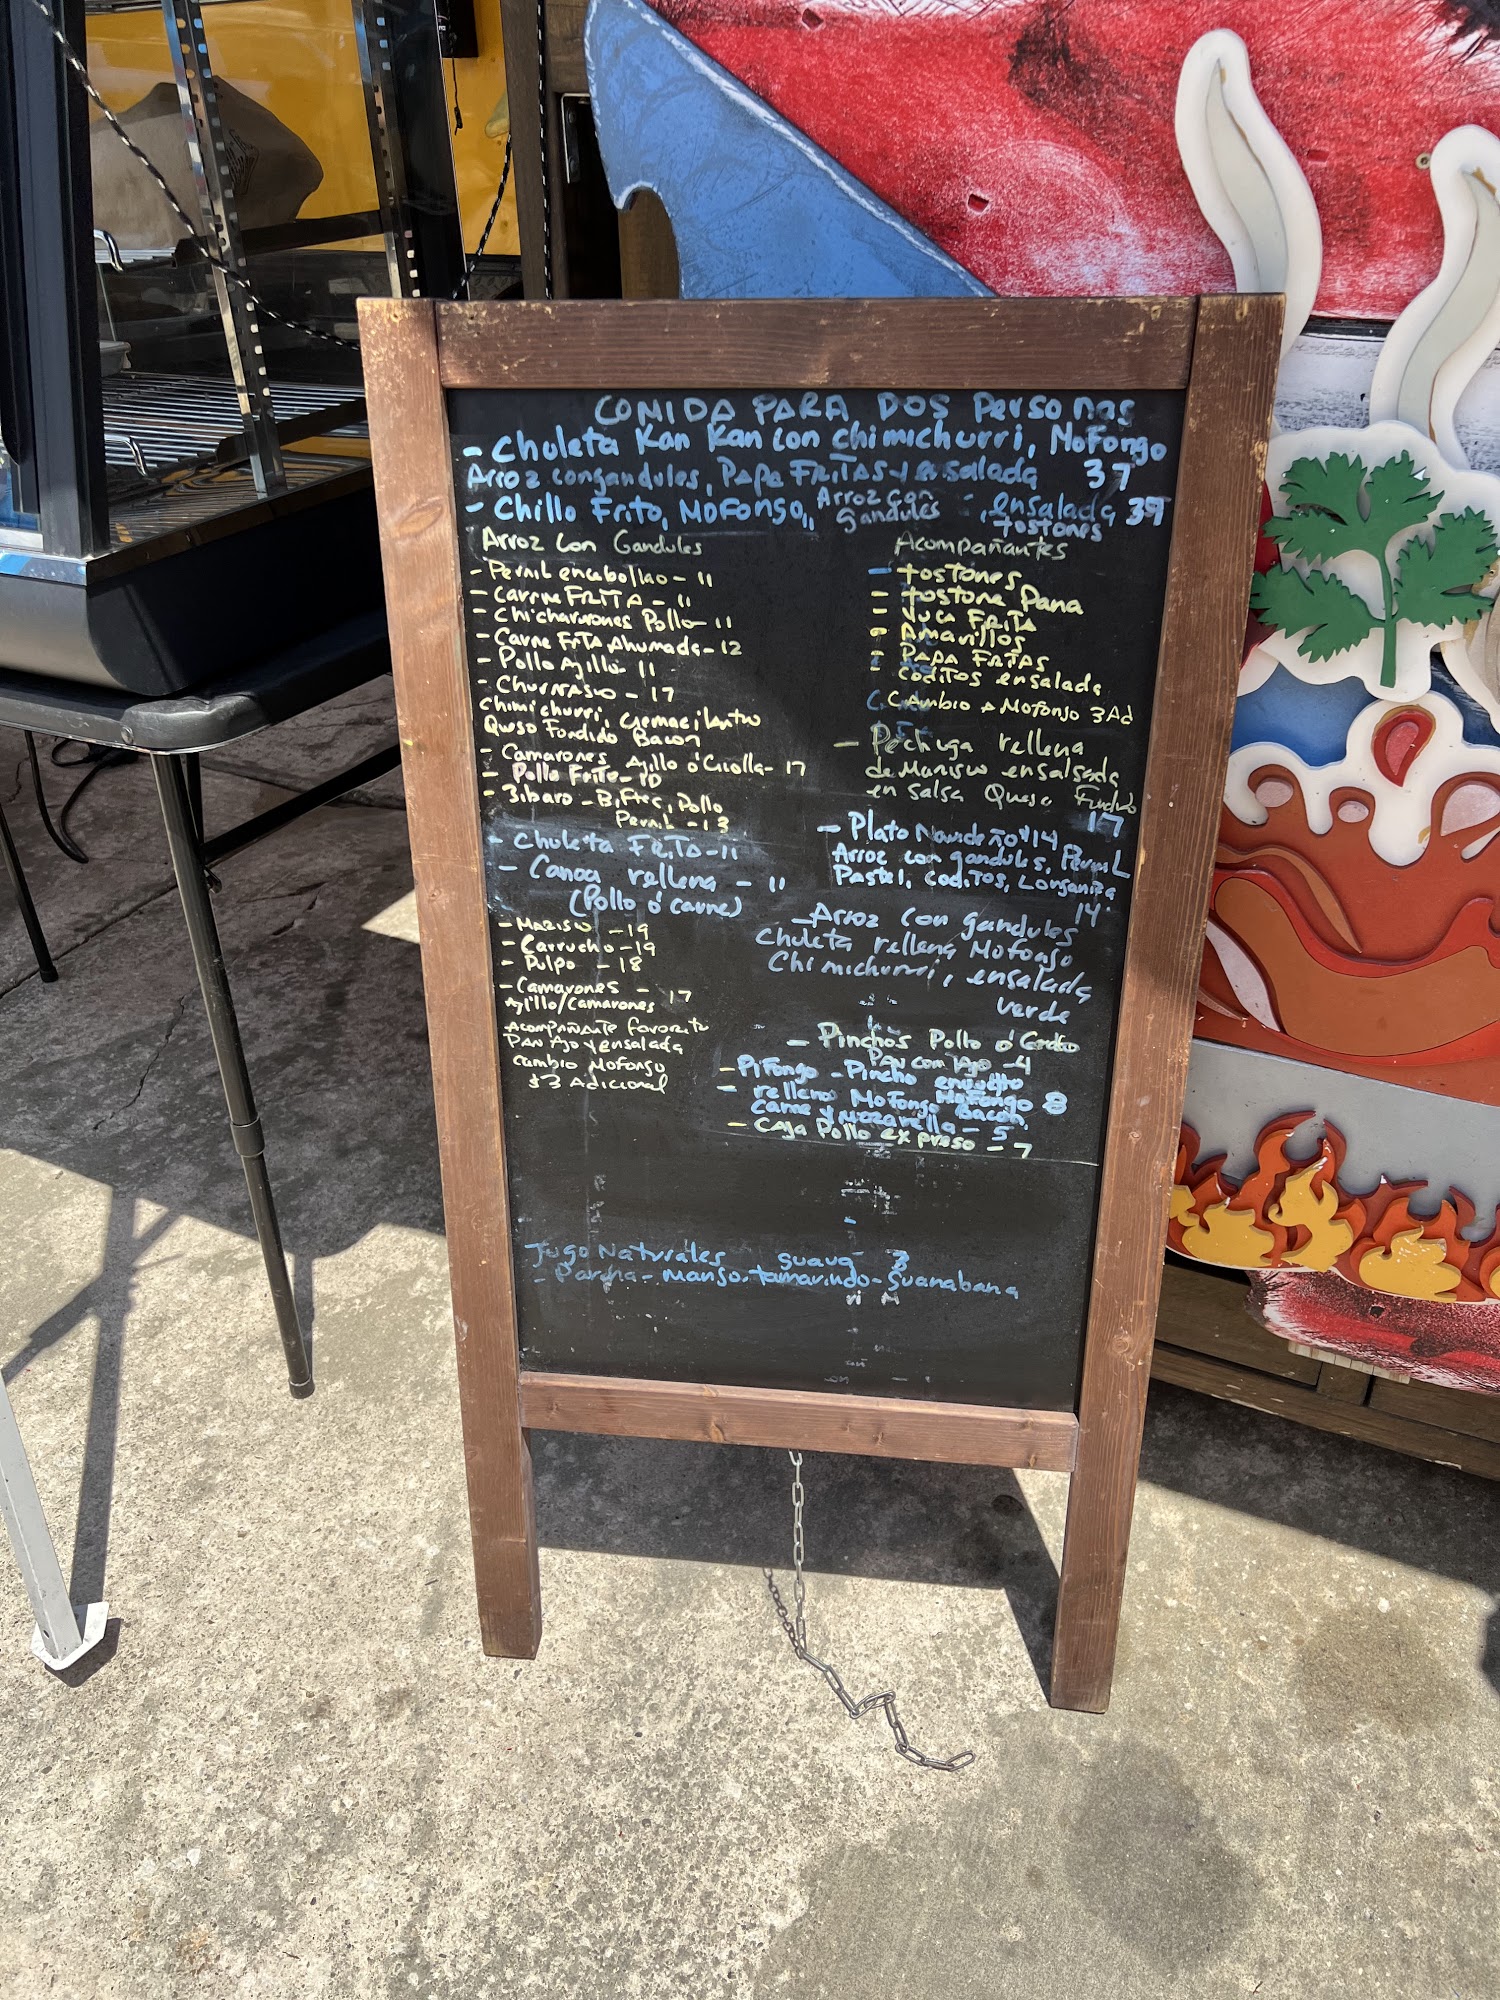 COMIDA PARA DOS Personas
- Chuleta Kan Kan con chimichurri, Mofongo
Arroz con gandules, Papa FRITAS y ensalada 37
- Chillo Frito, MOFONGO, Arroz con gandules, ensalada 39
tostones
Arroz con Gandules
- Pernil encebollao - 11
- Carne FRITA - 11
- Chicharrones Pollo - 11
- Carne Frita Ahumada - 12
- Pollo Ajillo - 11
- Churrasco - 17
chimichurri, crema cilantro
Queso Fundido Bacon
- Camarones Ajillo ó Criolla - 17
- Pollo Frito - 10
- Jibaro - Biftec, Pollo
Pernil - 13
- Chuleta FRITA - 11
- Canoa rellena - 11
(Pollo ó carne)
- Marisco - 19
- Carrucho - 19
- Pulpo - 18
- Camarones - 17
Ajillo/Camarones
Acompañante favorito
Pan Ajo y ensalada
Cambio Mofongo
$3 Adicional
Acompañantes
- tostones
- tostone Pana
- Yuca Frita
- Amarillos
- PAPA FRITAS
coditos ensalada
Cambio a Mofongo 3 Ad
- Pechuga rellena
de Marisco ensalsada
en salsa Queso Fundido
17
- Plato Navideño $14
Arroz con gandules, Pernil
Pastel, coditos, Longaniza
14
- Arroz con gandules
Chuleta rellena Mofongo
Chimichurri, ensalada
verde
- Pinchos Pollo ó Cerdo
Pan con Ajo - 4
- Pifongo - Pincho envuelto
Mofongo 8
- relleno Mofongo Bacon,
carne y Mozzarella - 5
- Caja Pollo expreso - 7
Jugo Naturales guava 3
- Parcha - mango. tamarindo - guanabana